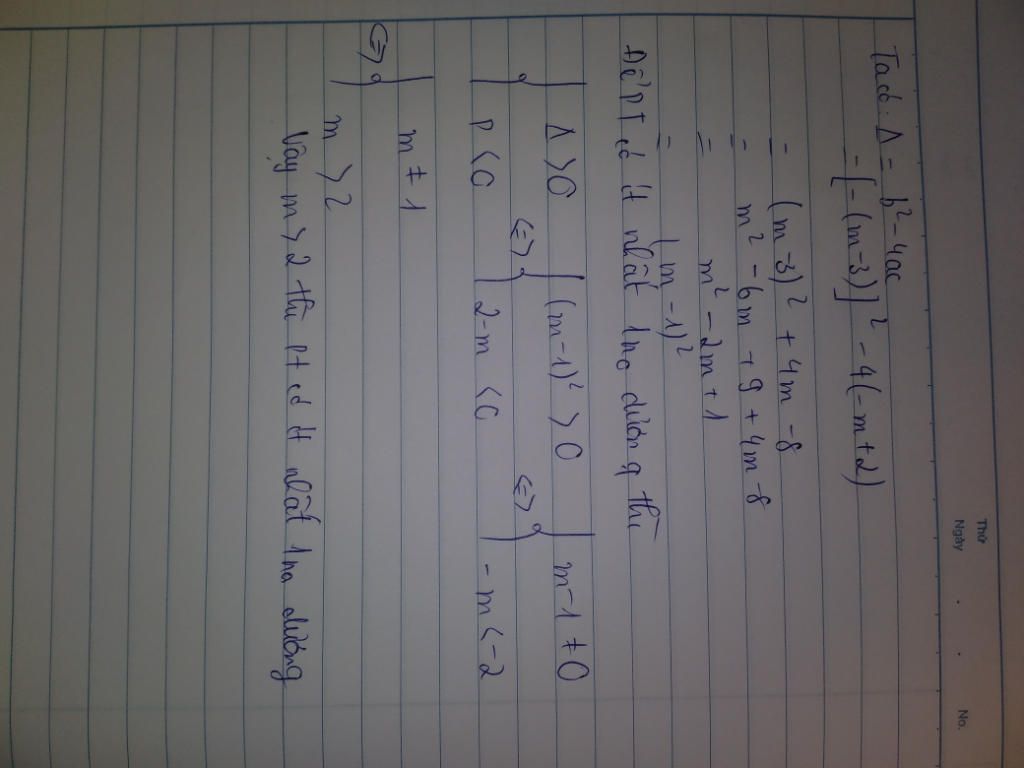 Thứ
Ngày . . No.
Ta có: Δ = b² - 4ac
= [-(m-3)]² - 4(-m+2)
= (m-3)² + 4m - 8
= m² - 6m + 9 + 4m - 8
= m² - 2m + 1
= (m-1)²
Để Pt có ít nhất 1 no dương thì
{ Δ > 0 <=> { (m-1)² > 0 <=> { m-1 ≠ 0
{ P < 0 { 2-m < 0 { -m < -2
<=> { m ≠ 1
{ m > 2
Vậy m > 2 thì pt có ít nhất 1 no dương